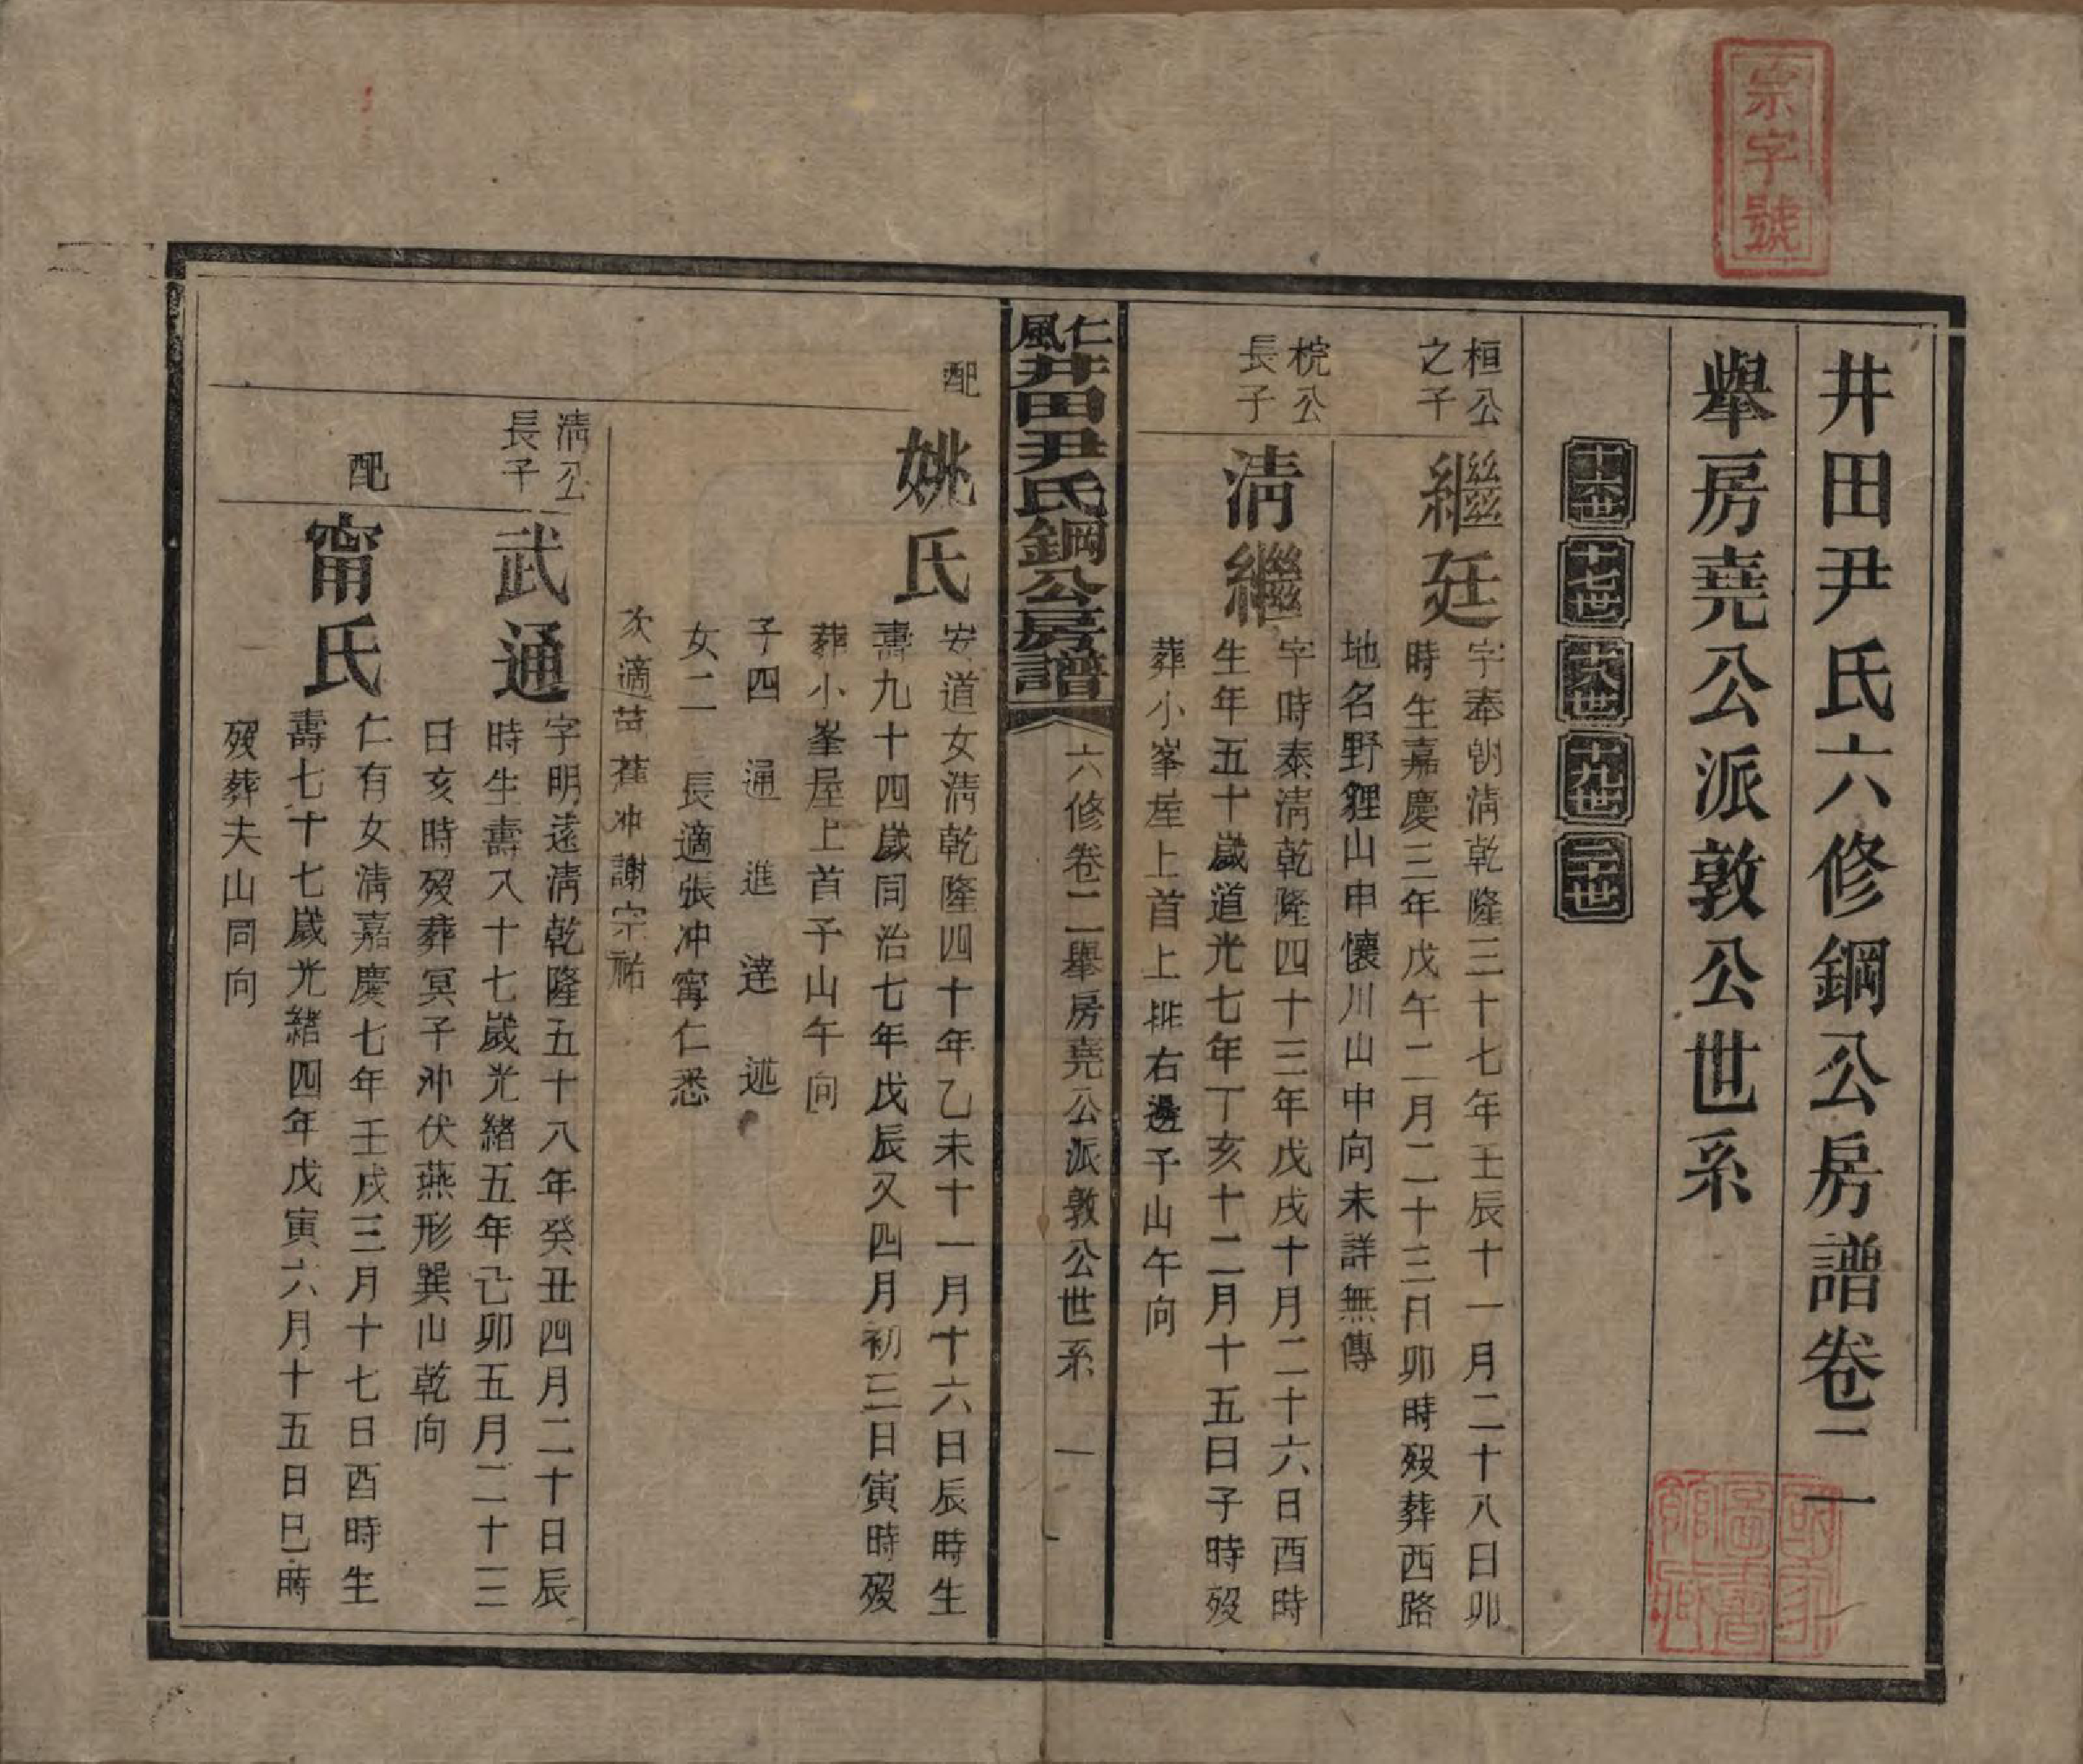 宗字號
井田尹氏六修鋼公房譜卷二
舉房堯公派敦公世系
十六世
十七世
十八世
十九世
二十世
桓公
之子
繼廷
字奉朝淸乾隆三十七年壬辰十一月二十八日卯
時生嘉慶三年戊午二月二十三日卯時歿葬西路
地名野貍山申懷川山中向未詳無傳
梡公
長子
淸繼
字時泰淸乾隆四十三年戊戌十月二十六日酉時
生年五十歲道光七年丁亥十二月十五日子時歿
葬小峯屋上首上排右邊子山午向
仁風井田尹氏鋼公房譜
六修卷二舉房堯公派敦公世系
一
配
姚氏
安道女淸乾隆四十年乙未十一月十六日辰時生
壽九十四歲同治七年戊辰又四月初三日寅時歿
葬小峯屋上首子山午向
子四 通 進 達 述
女二 長適張冲甯仁悉
次適苗蕉冲謝宗祐
淸公
長子
武通
字明遠淸乾隆五十八年癸丑四月二十日辰
時生壽八十七歲光緒五年己卯五月二十三
日亥時歿葬冥子冲伏燕形巽山乾向
配
甯氏
仁有女淸嘉慶七年壬戌三月十七日酉時生
壽七十七歲光緒四年戊寅六月十五日巳時
歿葬夫山同向